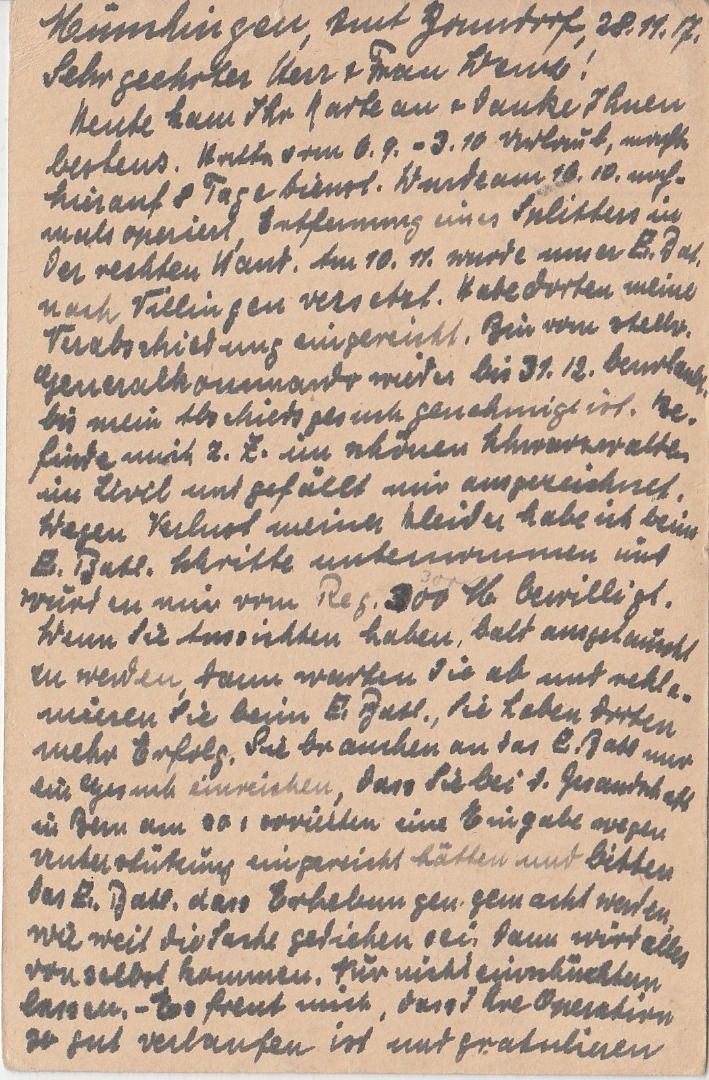 Münchingen, Amt Bonndorf, 28.11.17.
Sehr geehrter Herr & Frau !
Heute kam Ihr Karte an & danke Ihnen
bestens. Hatte vom 6.9. - 3.10 Urlaub, machte
hierauf 8 Tage Dienst. Wurde am 10.10. noch-
mals operiert, Entfernung eines Splitters in
der rechten Hand. Am 10.11. wurde unser E. Bat.
nach Villingen versetzt. Habe dorten meine
Verabschiedung eingereicht. Bin vom stellv.
Generalkommando wieder bis 31.12. beurlaubt,
bis mein Abschiedsgesuch genehmigt ist. Be-
finde mich z. Z. im schönen Schwarzwalde
in Zivil und gefällt mir ausgezeichnet.
Wegen Verlust meiner Kleider habe ich beim
E. Batl. Schritte unternommen und
wurden mir vom Reg. 300 M bewilligt.
Wenn Sie Aussichten haben, bald ausgetauscht
zu werden, dann warten Sie ab und rekla-
mieren Sie beim E. Batl., Sie haben dorten
mehr Erfolg. Sie brauchen an das E. Batl nur
ein Gesuch einreichen, dass Sie bei d. Gesandschaft
in Bern am so & sovielten eine Eingabe wegen
Unterstützung eingereicht hätten und bitten
das E. Batl. dass Erhebungen gemacht werden,
wie weit die Sache gediehen sei, dann wird alles
von selbst kommen. Nur nicht einschüchtern
lassen. - Es freut mich, dass Ihre Operation
so gut verlaufen ist und gratulieren